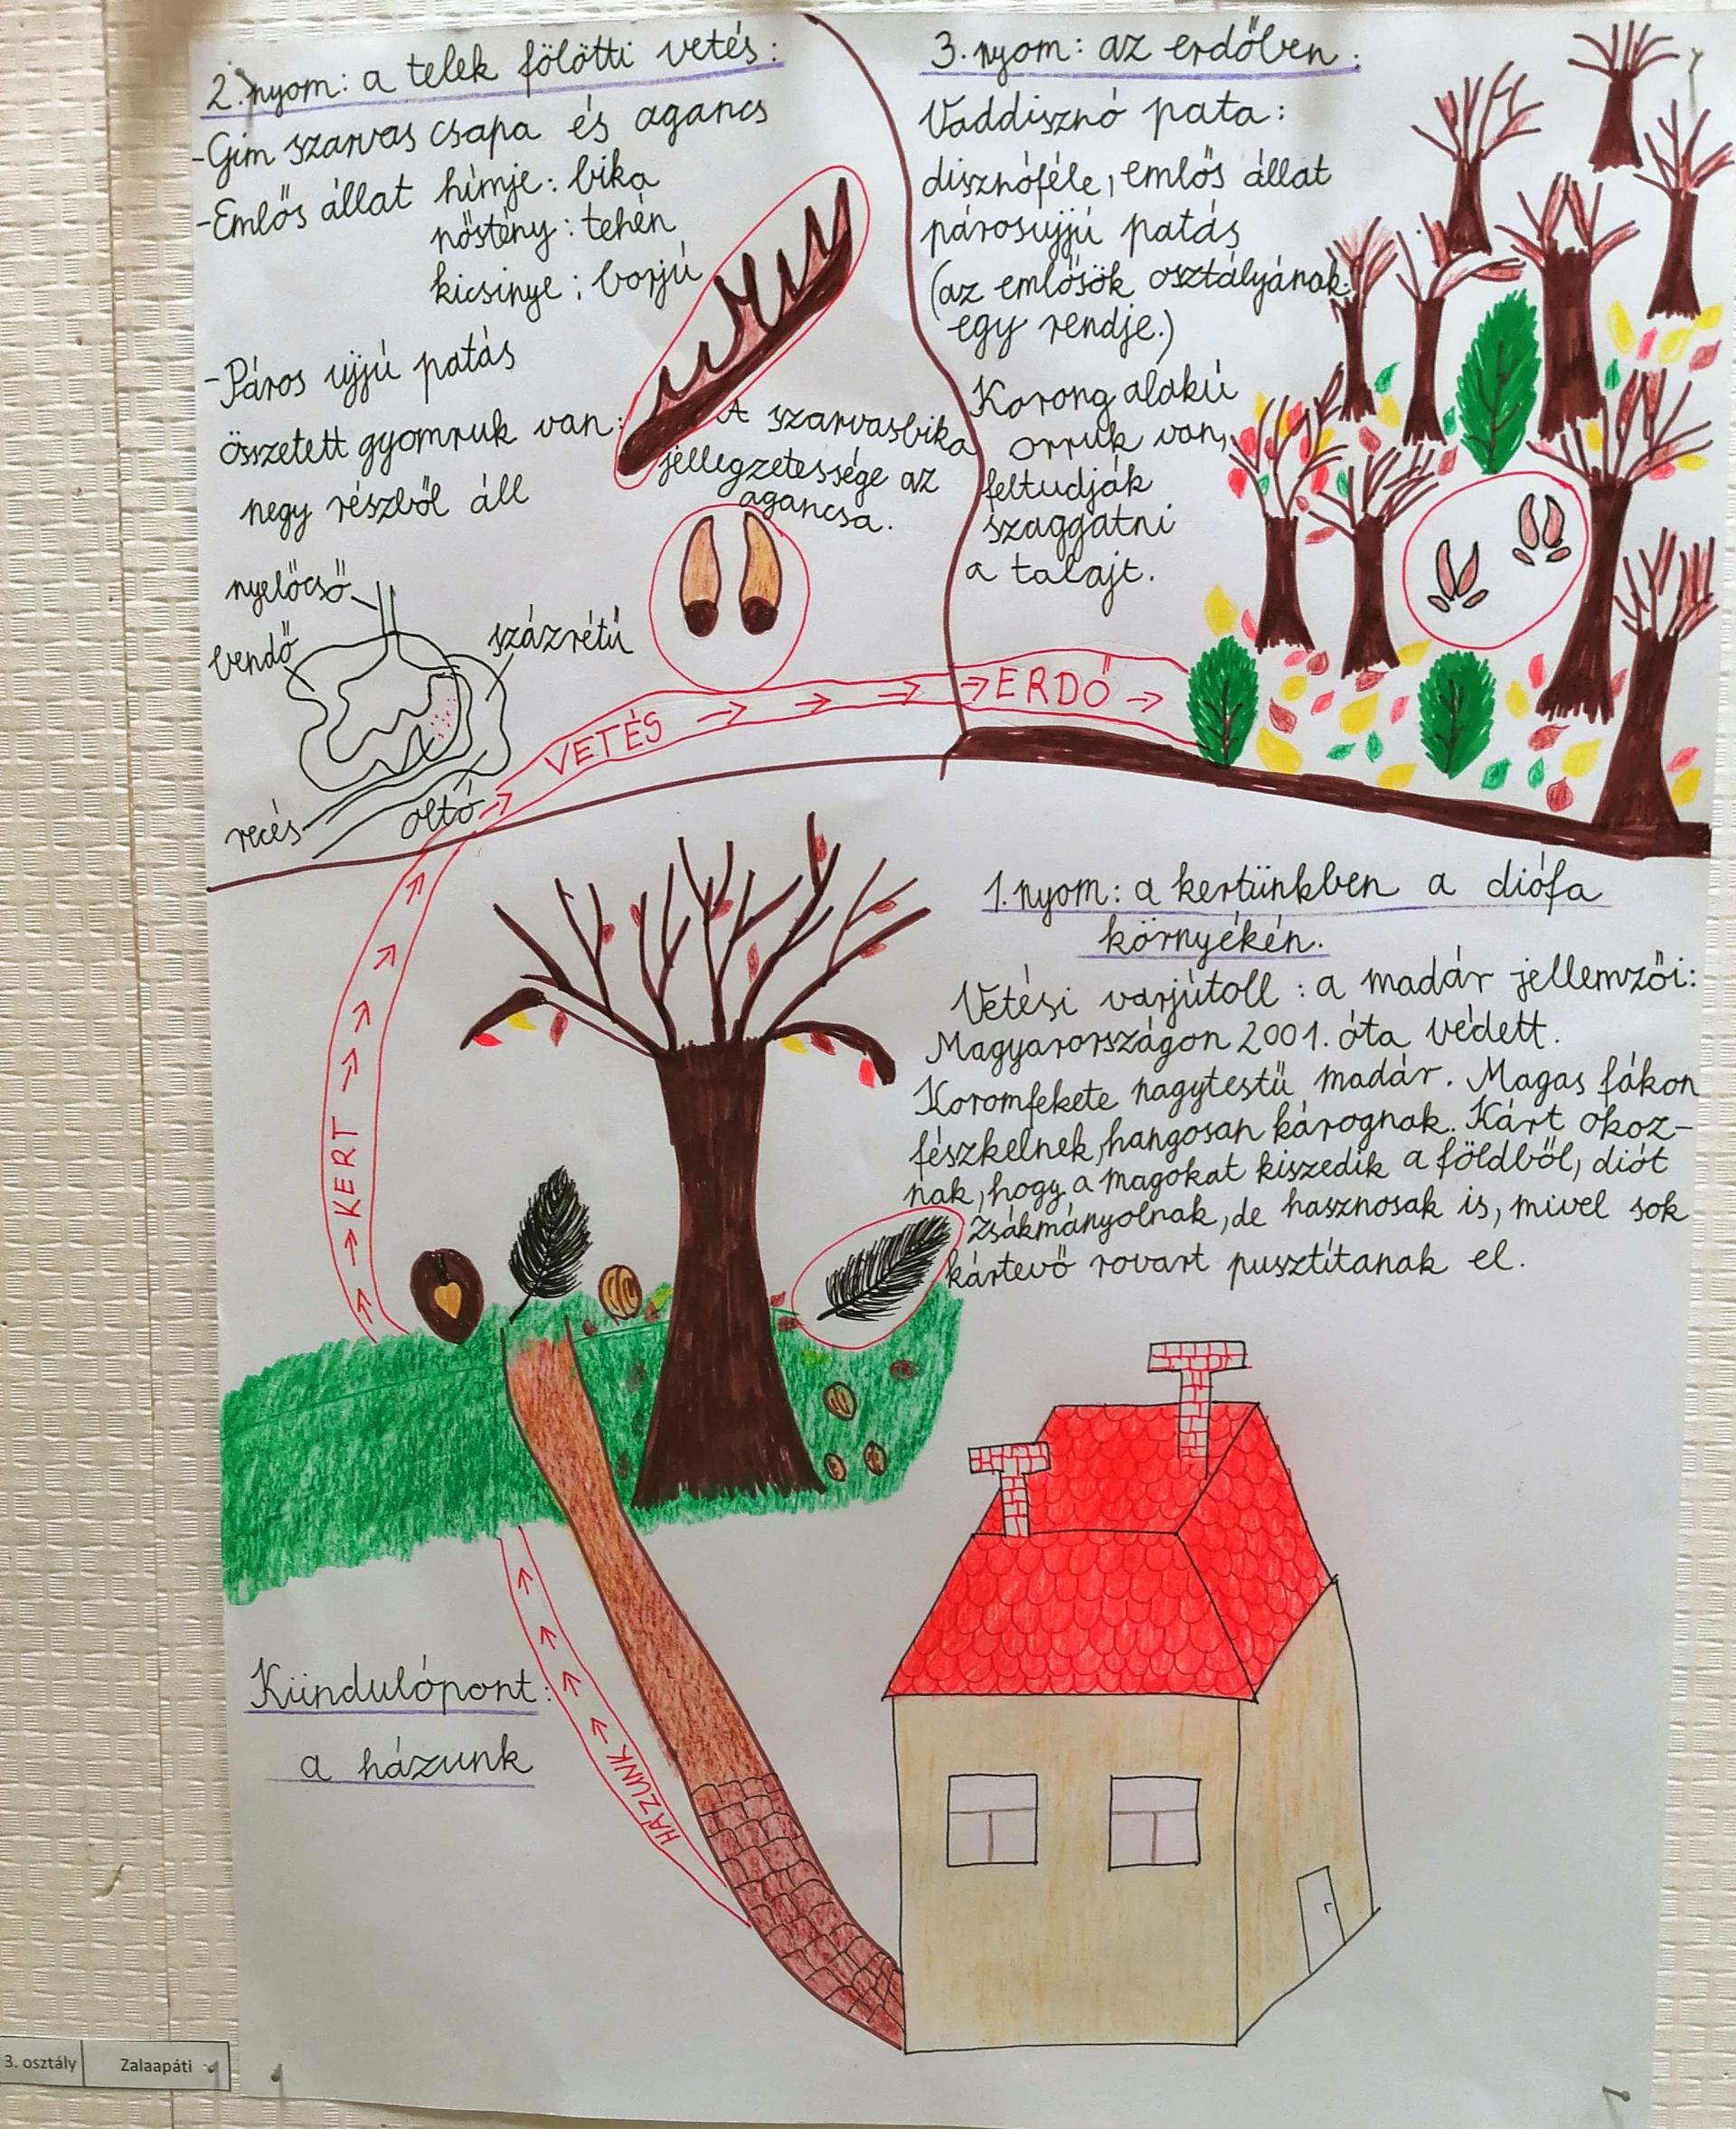 2. nyom: a telek fölötti vetés:
-Gím szarvas csapa és agancs
-Emlős állat hímje: bika
nőstény: tehén
kicsinye: borjú
-Páros ujjú patás
összetett gyomruk van:
negy részből áll
A szarvasbika
jellegzetessége az
agancsa.
nyelőcső
bendő
százrétű
recés
oltó
3. nyom: az erdőben:
Vaddisznó pata:
disznóféle, emlős állat
párosujjú patás
(az emlősök osztályának
egy rendje.)
Korong alakú
orruk van,
feltudják
szaggatni
a talajt.
VETÉS → → → → ERDŐ →
1. nyom: a kertünkben a diófa
környékén.
Vetési varjútoll: a madár jellemzői:
Magyarországon 2001. óta védett.
Koromfekete nagytestű madár. Magas fákon
fészkelnek, hangosan kárognak. Kárt okoz-
nak, hogy a magokat kiszedik a földből, diót
zsákmányolnak, de hasznosak is, mivel sok
kártevő rovart pusztítanak el.
KERT
Kiindulópont:
a házunk
HÁZUNK
3. osztály Zalaapáti